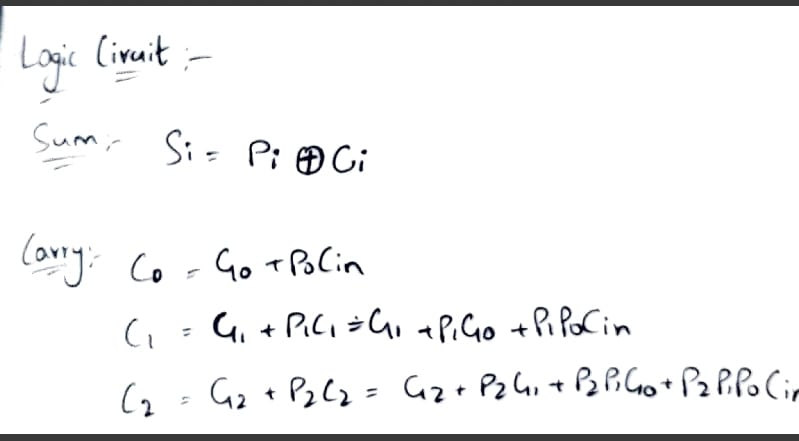 Logic Ciruit :-
Sum :- Si = Pi ⊕ Ci
Carry: C₀ = G₀ + P₀Cin
C₁ = G₁ + P₁C₁ = G₁ + P₁G₀ + P₁P₀Cin
C₂ = G₂ + P₂C₂ = G₂ + P₂G₁ + P₂P₁G₀ + P₂P₁P₀Cin